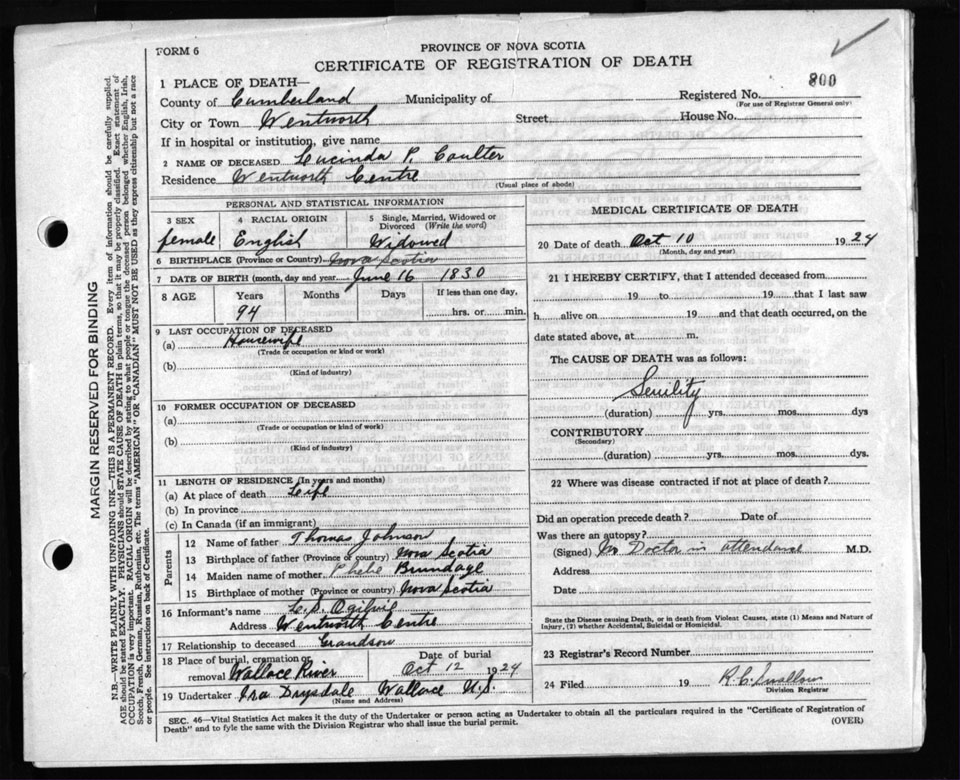 FORM 6
PROVINCE OF NOVA SCOTIA
CERTIFICATE OF REGISTRATION OF DEATH
800
1 PLACE OF DEATH—
County of Cumberland Municipality of
Registered No.
(For use of Registrar General only)
City or Town Wentworth Street
House No.
If in hospital or institution, give name
2 NAME OF DECEASED Lucinda P. Coulter
Residence Wentworth Centre
(Usual place of abode)
PERSONAL AND STATISTICAL INFORMATION
3 SEX female
4 RACIAL ORIGIN English
5 Single, Married, Widowed or Divorced (Write the word) Widowed
6 BIRTHPLACE (Province or Country) Nova Scotia
7 DATE OF BIRTH (month, day and year) June 16 1830
8 AGE Years Months Days If less than one day,
94 hrs. or min.
9 LAST OCCUPATION OF DECEASED
(a) Housewife
(Trade or occupation or kind or work)
(b)
(Kind of industry)
10 FORMER OCCUPATION OF DECEASED
(a)
(Trade or occupation or kind of work)
(b)
(Kind of industry)
11 LENGTH OF RESIDENCE (In years and months)
(a) At place of death Life
(b) In province
(c) In Canada (if an immigrant)
Parents
12 Name of father Thomas Johnson
13 Birthplace of father (Province or country) Nova Scotia
14 Maiden name of mother Phebe Brundage
15 Birthplace of mother (Province or country) Nova Scotia
16 Informant's name L.S. Ogilvie
Address Wentworth Centre
17 Relationship to deceased Grandson
18 Place of burial, cremation or removal Wallace River
Date of burial Oct 12 1924
19 Undertaker Ira Drysdale Wallace N.S.
(Name and Address)
MEDICAL CERTIFICATE OF DEATH
20 Date of death Oct 10 1924
(Month, day and year)
21 I HEREBY CERTIFY, that I attended deceased from
19 to 19 that I last saw
h alive on 19 and that death occurred, on the
date stated above, at m.
The CAUSE OF DEATH was as follows:
Senility
(duration) yrs. mos. dys
CONTRIBUTORY
(Secondary)
(duration) yrs. mos. dys.
22 Where was disease contracted if not at place of death?
Did an operation precede death? Date of
Was there an autopsy?
(Signed) No Doctor in attendance M.D.
Address
Date
State the Disease causing Death, or in death from Violent Causes, state (1) Means and Nature of
Injury, (2) whether Accidental, Suicidal or Homicidal.
23 Registrar's Record Number
24 Filed 19 R.C. Swallow
Division Registrar
SEC. 46—Vital Statistics Act makes it the duty of the Undertaker or person acting as Undertaker to obtain all the particulars required in the "Certificate of Registration of
Death" and to fyle the same with the Division Registrar who shall issue the burial permit.
(OVER)
MARGIN RESERVED FOR BINDING
N.B.—WRITE PLAINLY WITH UNFADING INK—THIS IS A PERMANENT RECORD. Every item of information should be carefully supplied.
AGE should be stated EXACTLY. PHYSICIANS should STATE CAUSE OF DEATH in plain terms, so that it may be properly classified. Exact statement of
OCCUPATION is very important. RACIAL ORIGIN will be described by stating to what people or tongue the deceased person belonged whether English, Irish,
Scotch, French, German, Russian, Ruthenian, etc. The terms "AMERICAN" OR "CANADIAN" MUST NOT BE USED as they express citizenship but not a race
or people. See instructions on back of Certificate.